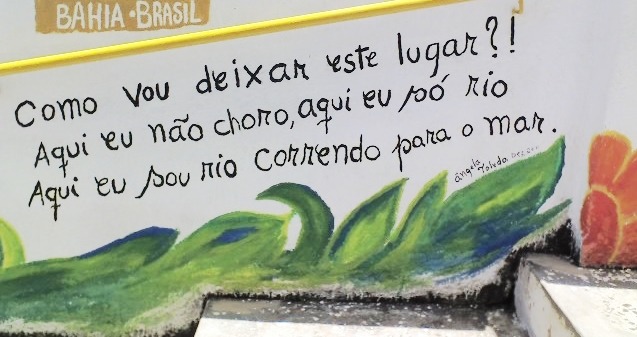 BAHIA • BRASIL
Como vou deixar este lugar?!
Aqui eu não choro, aqui eu só rio
Aqui eu sou rio correndo para o mar.
Ângela
Toledo